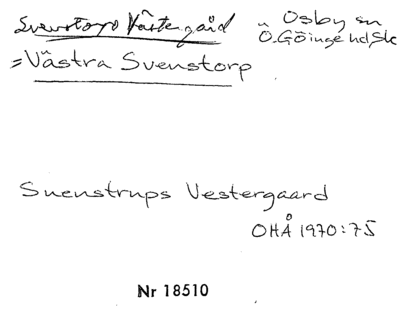 Svenstorps Västergård
Osby sn
Ö. Göinge hd, Sk
= Västra Svenstorp
Svenstrups Vestergaard
OHÅ 1970:75
Nr 18510